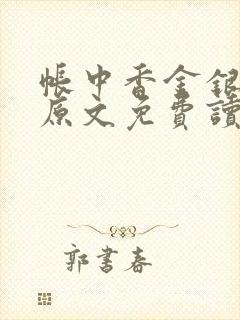 帳中香金銀
原文免費讀
郭書春